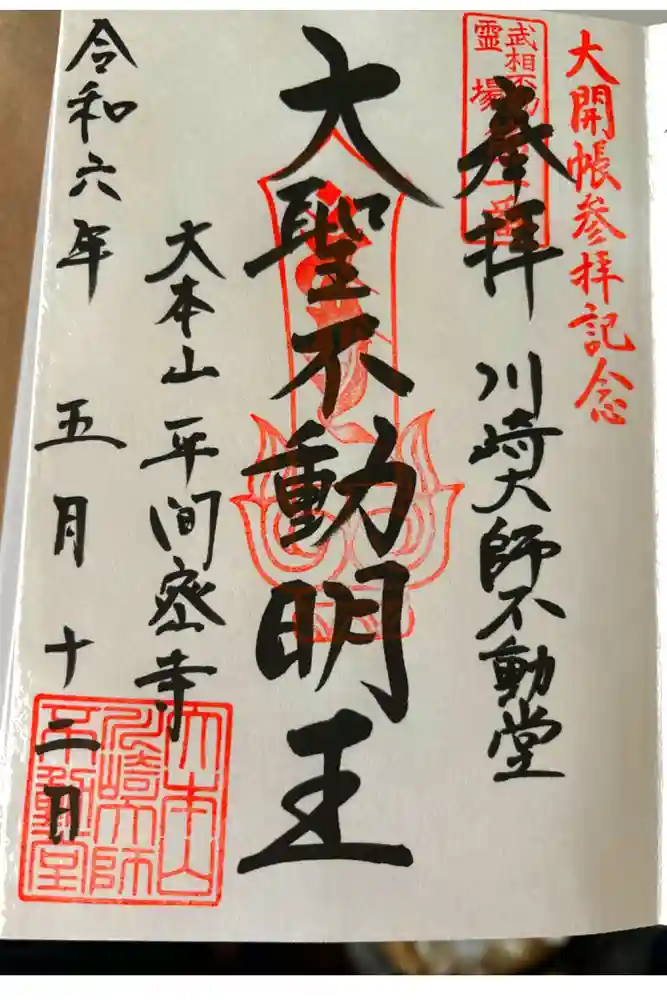 大開帳参拝記念
武相不動
霊場
奉拝
川崎大師不動堂
大聖不動明王
大本山 平間密寺
令和六年 五月 十二日
大本山
川崎大師
不動堂